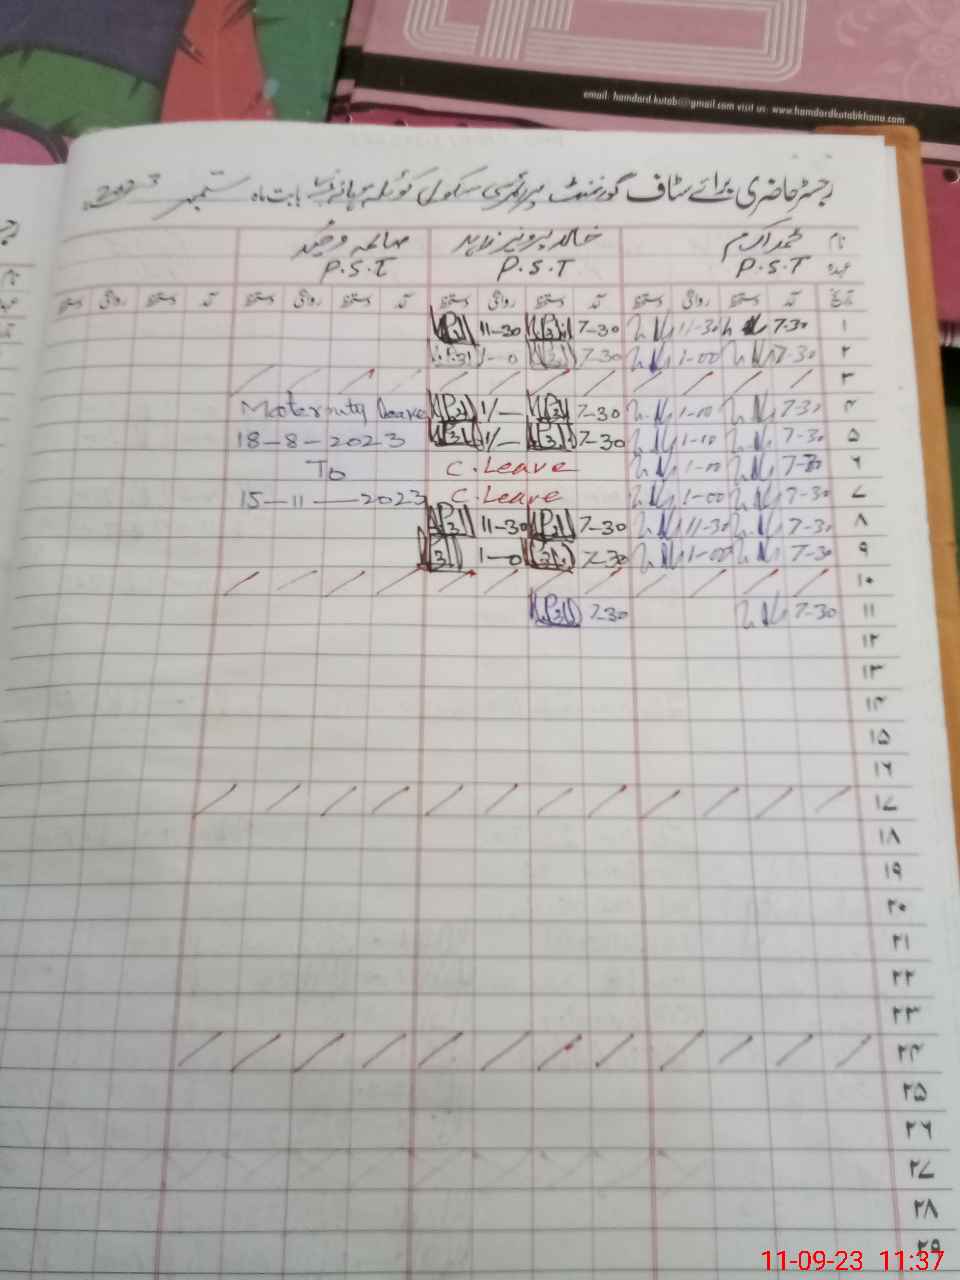 email: hamdard.kutab@gmail.com visit us: www.hamdardkutabkhana.com
رجسٹر حاضری برائے سٹاف گورنمنٹ پرائمری سکول بابت ماہ ستمبر 2023
نام محمد اکرم خالد پرویز زاہد صالحہ وحید
عہدہ P.S.T P.S.T P.S.T
تاریخ آمد دستخط روانگی دستخط آمد دستخط روانگی دستخط آمد دستخط روانگی دستخط آمد دستخط روانگی دستخط
۱ 7-30 11-30 7-30 11-30
۲ 7-30 1-00 7-30 1-0
۳
۴ 7-30 1-00 7-30 1/- Maternity Leave
۵ 7-30 1-00 7-30 1/- 18-8-2023
۶ 7-30 1-00 C. Leave To
۷ 7-30 1-00 C. Leave 15-11-2023
۸ 7-30 11-30 7-30 11-30
۹ 7-30 1-00 7-30 1-0
۱۰
۱۱ 7-30 7-30
۱۲
۱۳
۱۴
۱۵
۱۶
۱۷
۱۸
۱۹
۲۰
۲۱
۲۲
۲۳
۲۴
۲۵
۲۶
۲۷
۲۸
۲۹
11-09-23 11:37